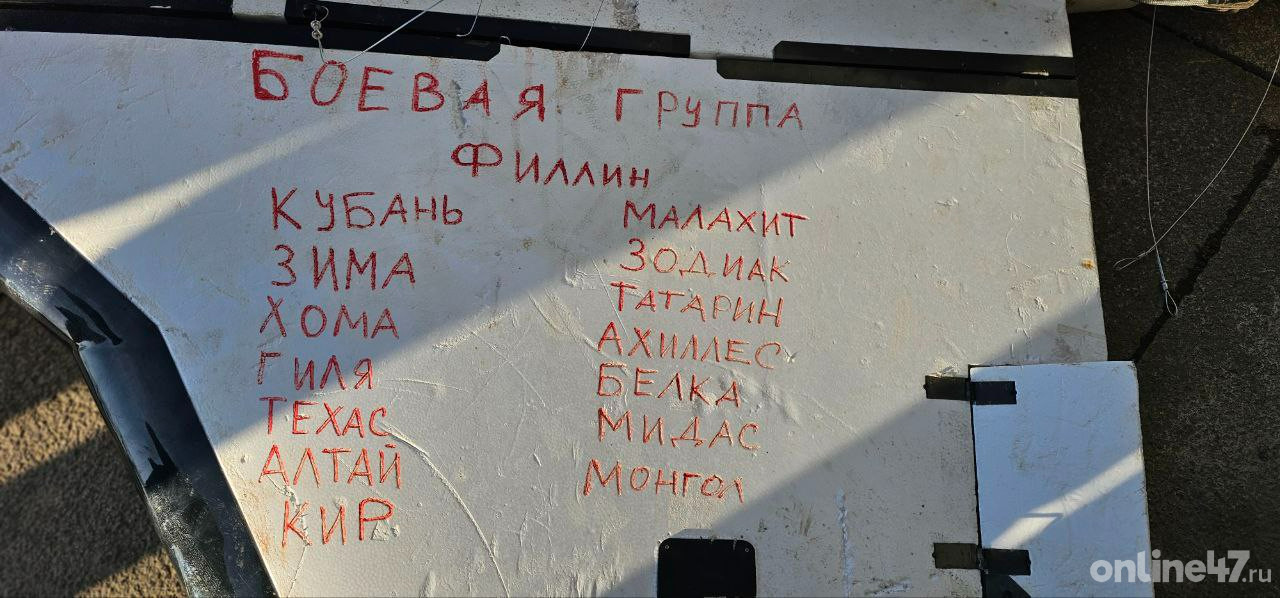 БОЕВАЯ ГРУППА
ФИЛЛИН
КУБАНЬ
ЗИМА
ХОМА
ГИЛЯ
ТЕХАС
АЛТАЙ
КИР
МАЛАХИТ
ЗОДИАК
ТАТАРИН
АХИЛЛЕС
БЕЛКА
МИДАС
МОНГОЛ
online47.ru